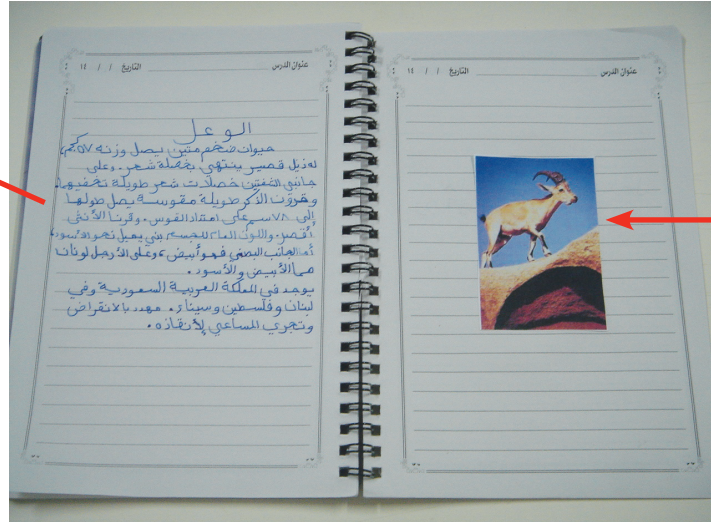 عنوان الدرس التاريخ / / ١٤
عنوان الدرس التاريخ / / ١٤
الوعل
حيوان ضخم متين يصل وزنه ٧٥ كجم
له ذيل قصير ينتهي بخصلة شعر. وعلى
جانبي خصلات شعر طويلة تخفيهما.
وقرون الذكر طويلة مقوسة يصل طولها
إلى ٧٨ سم على امتداد القوس. وقرنا الأنثى
أقصر. واللون العام للجسم بني يميل نحو الأسود
أما الجانب البطني فهو أبيض، وعلى الأرجل لونان
هما الأبيض والأسود.
يوجد في المملكة العربية السعودية وفي
لبنان وفلسطين وسيناء. مهدد بالانقراض
وتجري المساعي لإنقاذه.